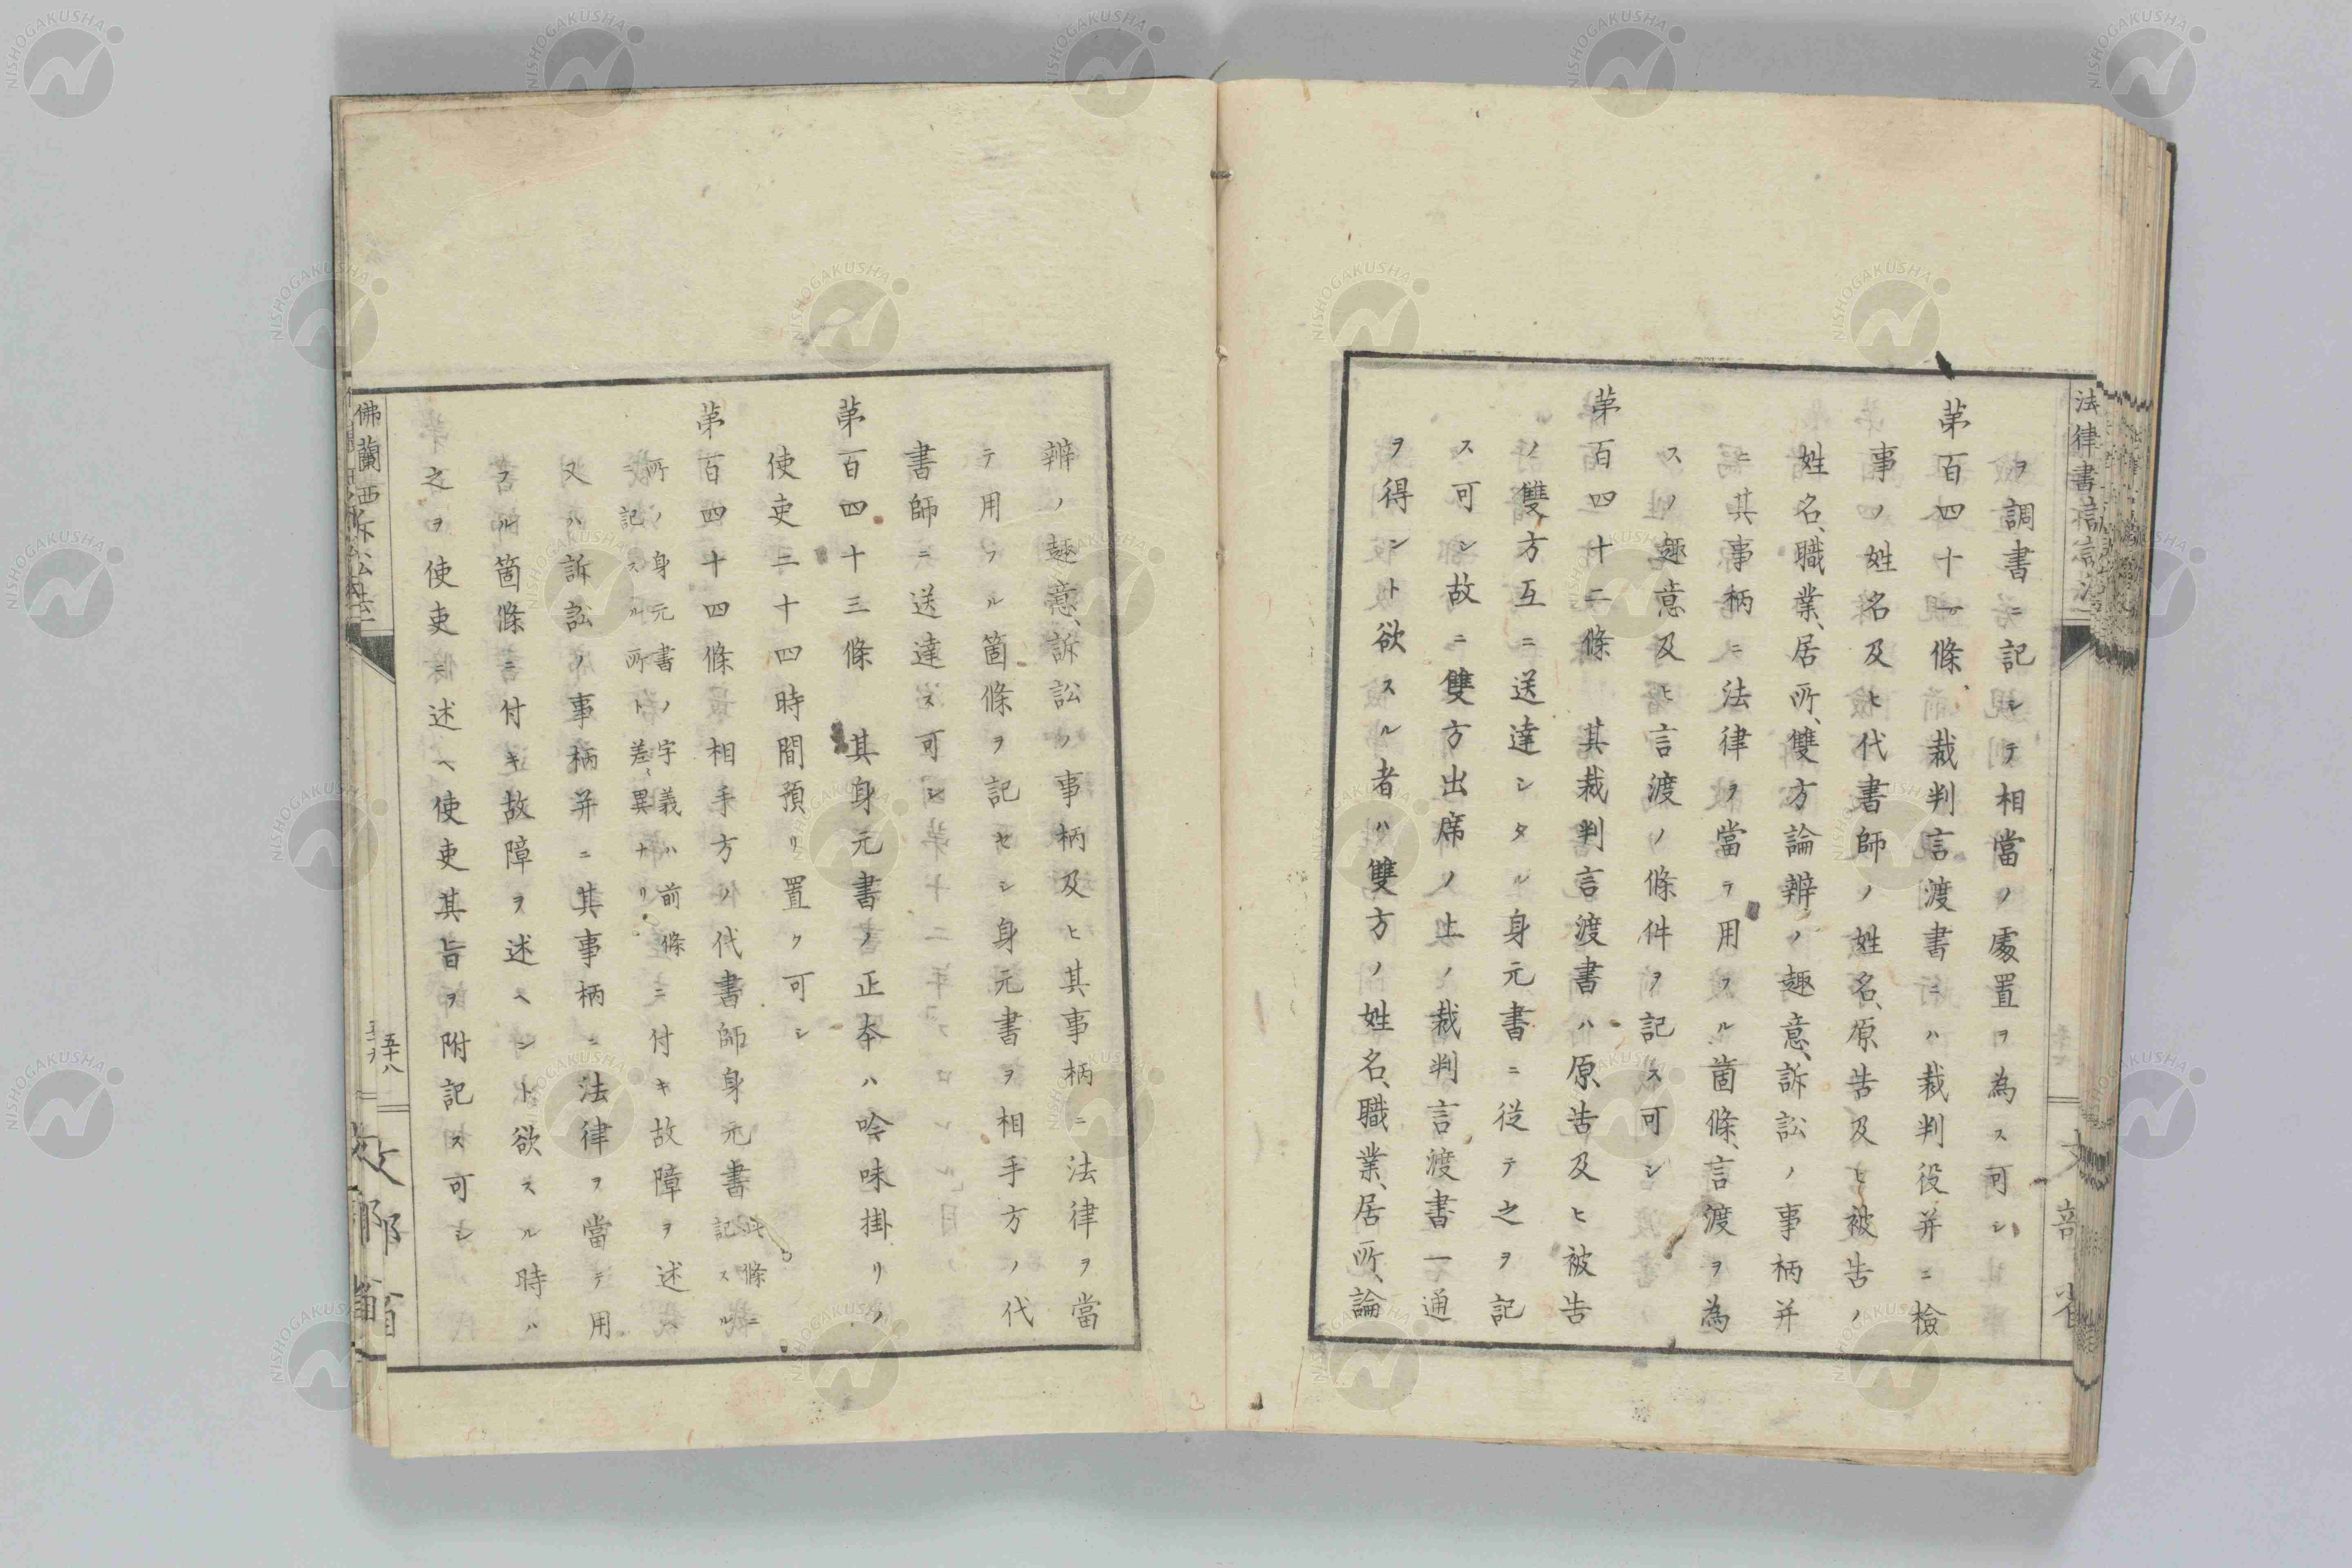 ヲ調書ニ記シテ相當ノ處置ヲ為ス可シ
第百四十一條 裁判言渡書ニハ裁判役并ニ檢
事ノ姓名及ヒ代書師ノ姓名、原告及ヒ被告ノ
姓名、職業、居所、雙方論辨ノ趣意、訴訟ノ事柄并
ニ其事柄ニ法律ヲ當テ用フル箇條、言渡ヲ為
スノ趣意及ヒ言渡ノ條件ヲ記ス可シ
第百四十二條 其裁判言渡書ハ原告及ヒ被告
ノ雙方互ニ送達シタル身元書ニ従テ之ヲ記
ス可シ故ニ雙方出席ノ上ノ裁判言渡書一通
ヲ得ント欲スル者ハ雙方ノ姓名、職業、居所、論
辨ノ趣意、訴訟ノ事柄及ヒ其事柄ニ法律ヲ當
テ用フル箇條ヲ記セシ身元書ヲ相手方ノ代
書師ニ送達ス可シ
第百四十三條 其身元書ノ正本ハ吟味掛リノ
使吏二十四時間預リ置ク可シ
第百四十四條 相手方ノ代書師身元書此條ニ記スル
所ノ身元書ノ字義ハ前條ニ記スル所ト差異ナリニ付キ故障ヲ述
又ハ訴訟ノ事柄并ニ其事柄ニ法律ヲ當テ用
フル箇條ニ付キ故障ヲ述ヘント欲スル時ハ
之ヲ使吏ニ述ヘ使吏其旨ヲ附記ス可シ
佛蘭西訴訟法
五十八
文部省
NISHOGAKUSHA